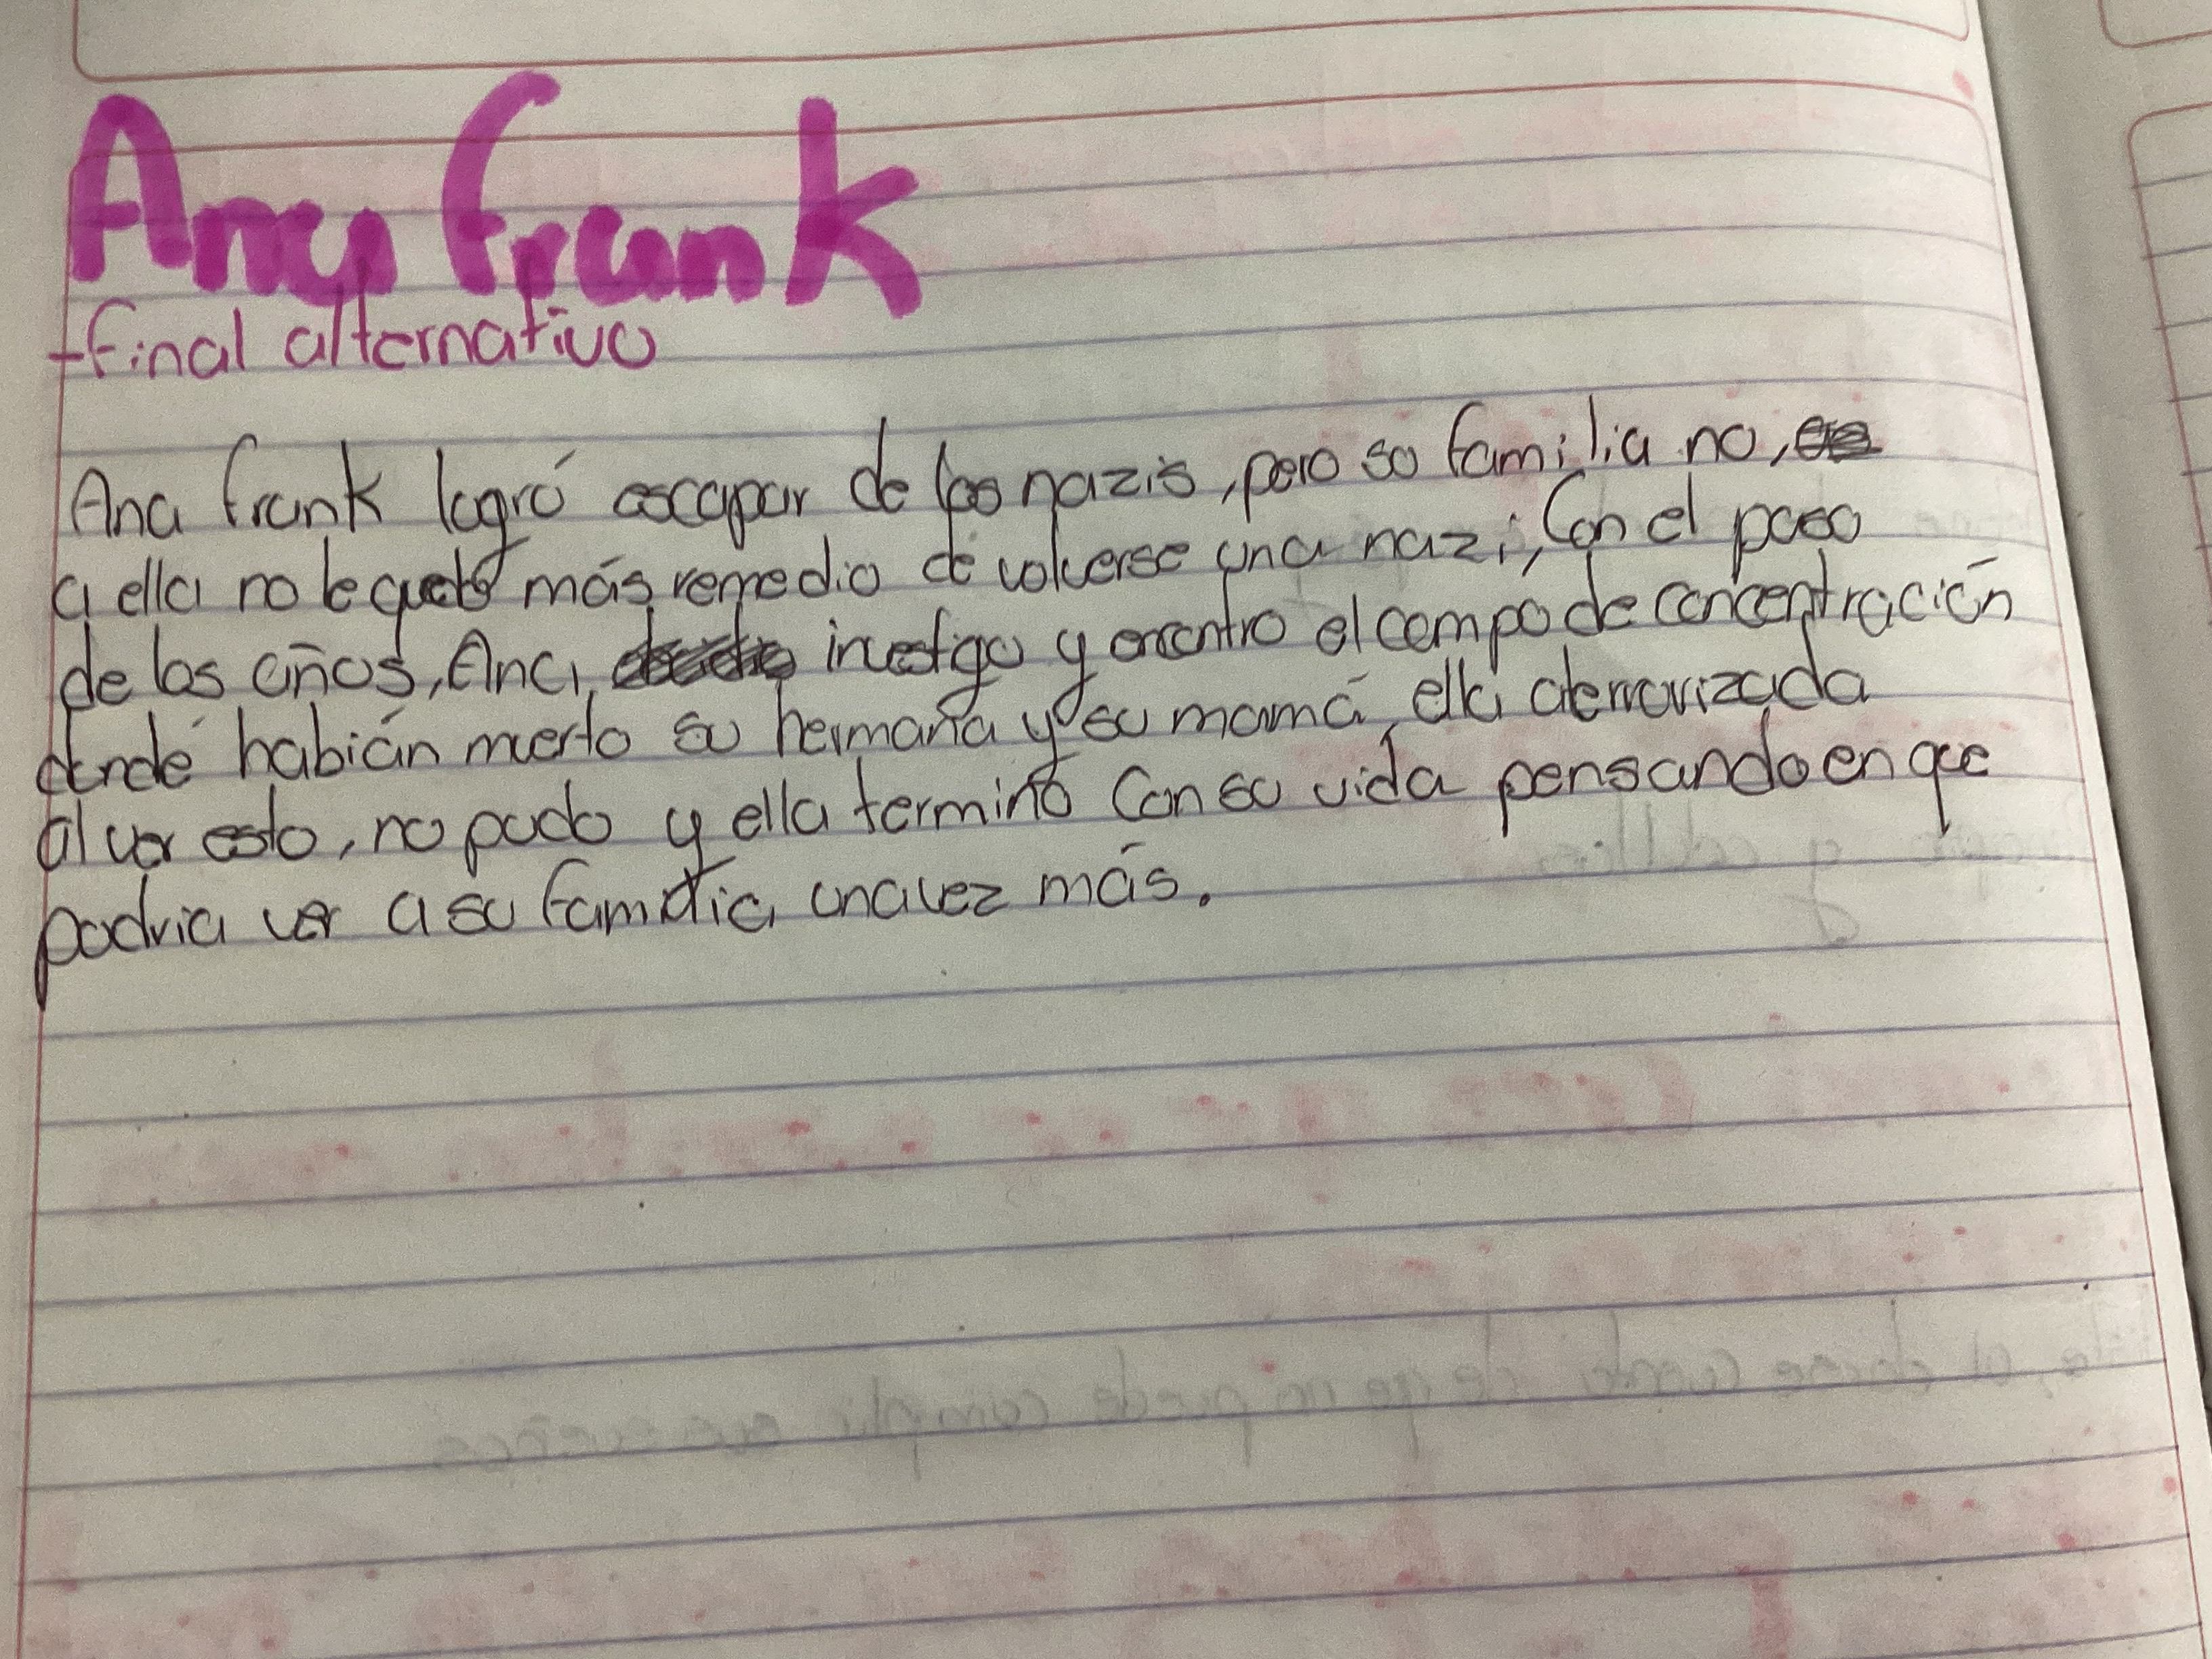 Ana Frank
-Final alternativo
Ana Frank logró escapar de los nazis, pero su familia no,
a ella no le quedo más remedio de volverse una nazi, Con el paso
de los años, Ana, investigo y encontro el campo de concentración
donde habían muerto su hermana y su mamá, ella aterrorizada
al ver esto, no pudo y ella terminó con su vida pensando en que
podria ver a su familia una vez más.